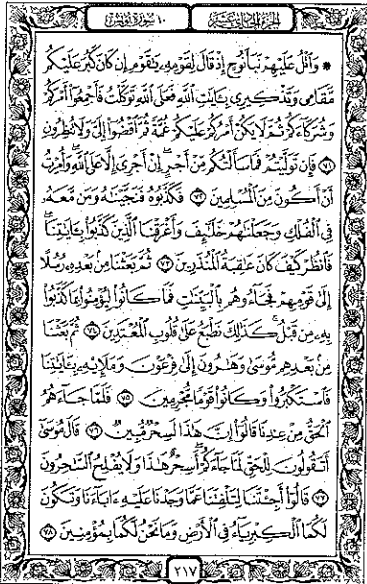 ١٠ سورة يونس
الجزء الحادي عشر
۞ وَٱتۡلُ عَلَيۡهِمۡ نَبَأَ نُوحٍ إِذۡ قَالَ لِقَوۡمِهِۦ يَٰقَوۡمِ إِن كَانَ كَبُرَ عَلَيۡكُم
مَّقَامِي وَتَذۡكِيرِي بِـَٔايَٰتِ ٱللَّهِ فَعَلَى ٱللَّهِ تَوَكَّلۡتُ فَأَجۡمِعُوٓاْ أَمۡرَكُمۡ
وَشُرَكَآءَكُمۡ ثُمَّ لَا يَكُنۡ أَمۡرُكُمۡ عَلَيۡكُمۡ غُمَّةٗ ثُمَّ ٱقۡضُوٓاْ إِلَيَّ وَلَا تُنظِرُونِ
٧١ فَإِن تَوَلَّيۡتُمۡ فَمَا سَأَلۡتُكُم مِّنۡ أَجۡرٍۖ إِنۡ أَجۡرِيَ إِلَّا عَلَى ٱللَّهِۖ وَأُمِرۡتُ
أَنۡ أَكُونَ مِنَ ٱلۡمُسۡلِمِينَ ٧٢ فَكَذَّبُوهُ فَنَجَّيۡنَٰهُ وَمَن مَّعَهُۥ
فِي ٱلۡفُلۡكِ وَجَعَلۡنَٰهُمۡ خَلَٰٓئِفَ وَأَغۡرَقۡنَا ٱلَّذِينَ كَذَّبُواْ بِـَٔايَٰتِنَاۖ
فَٱنظُرۡ كَيۡفَ كَانَ عَٰقِبَةُ ٱلۡمُنذَرِينَ ٧٣ ثُمَّ بَعَثۡنَا مِنۢ بَعۡدِهِۦ رُسُلًا
إِلَىٰ قَوۡمِهِمۡ فَجَآءُوهُم بِٱلۡبَيِّنَٰتِ فَمَا كَانُواْ لِيُؤۡمِنُواْ بِمَا كَذَّبُواْ
بِهِۦ مِن قَبۡلُۚ كَذَٰلِكَ نَطۡبَعُ عَلَىٰ قُلُوبِ ٱلۡمُعۡتَدِينَ ٧٤ ثُمَّ بَعَثۡنَا
مِنۢ بَعۡدِهِم مُّوسَىٰ وَهَٰرُونَ إِلَىٰ فِرۡعَوۡنَ وَمَلَإِيْهِۦ بِـَٔايَٰتِنَا
فَٱسۡتَكۡبَرُواْ وَكَانُواْ قَوۡمٗا مُّجۡرِمِينَ ٧٥ فَلَمَّا جَآءَهُمُ
ٱلۡحَقُّ مِنۡ عِندِنَا قَالُوٓاْ إِنَّ هَٰذَا لَسِحۡرٞ مُّبِينٞ ٧٦ قَالَ مُوسَىٰٓ
أَتَقُولُونَ لِلۡحَقِّ لَمَّا جَآءَكُمۡۖ أَسِحۡرٌ هَٰذَا وَلَا يُفۡلِحُ ٱلسَّٰحِرُونَ
٧٧ قَالُوٓاْ أَجِئۡتَنَا لِتَلۡفِتَنَا عَمَّا وَجَدۡنَا عَلَيۡهِ ءَابَآءَنَا وَتَكُونَ
لَكُمَا ٱلۡكِبۡرِيَآءُ فِي ٱلۡأَرۡضِ وَمَا نَحۡنُ لَكُمَا بِمُؤۡمِنِينَ ٧٨
٢١٧